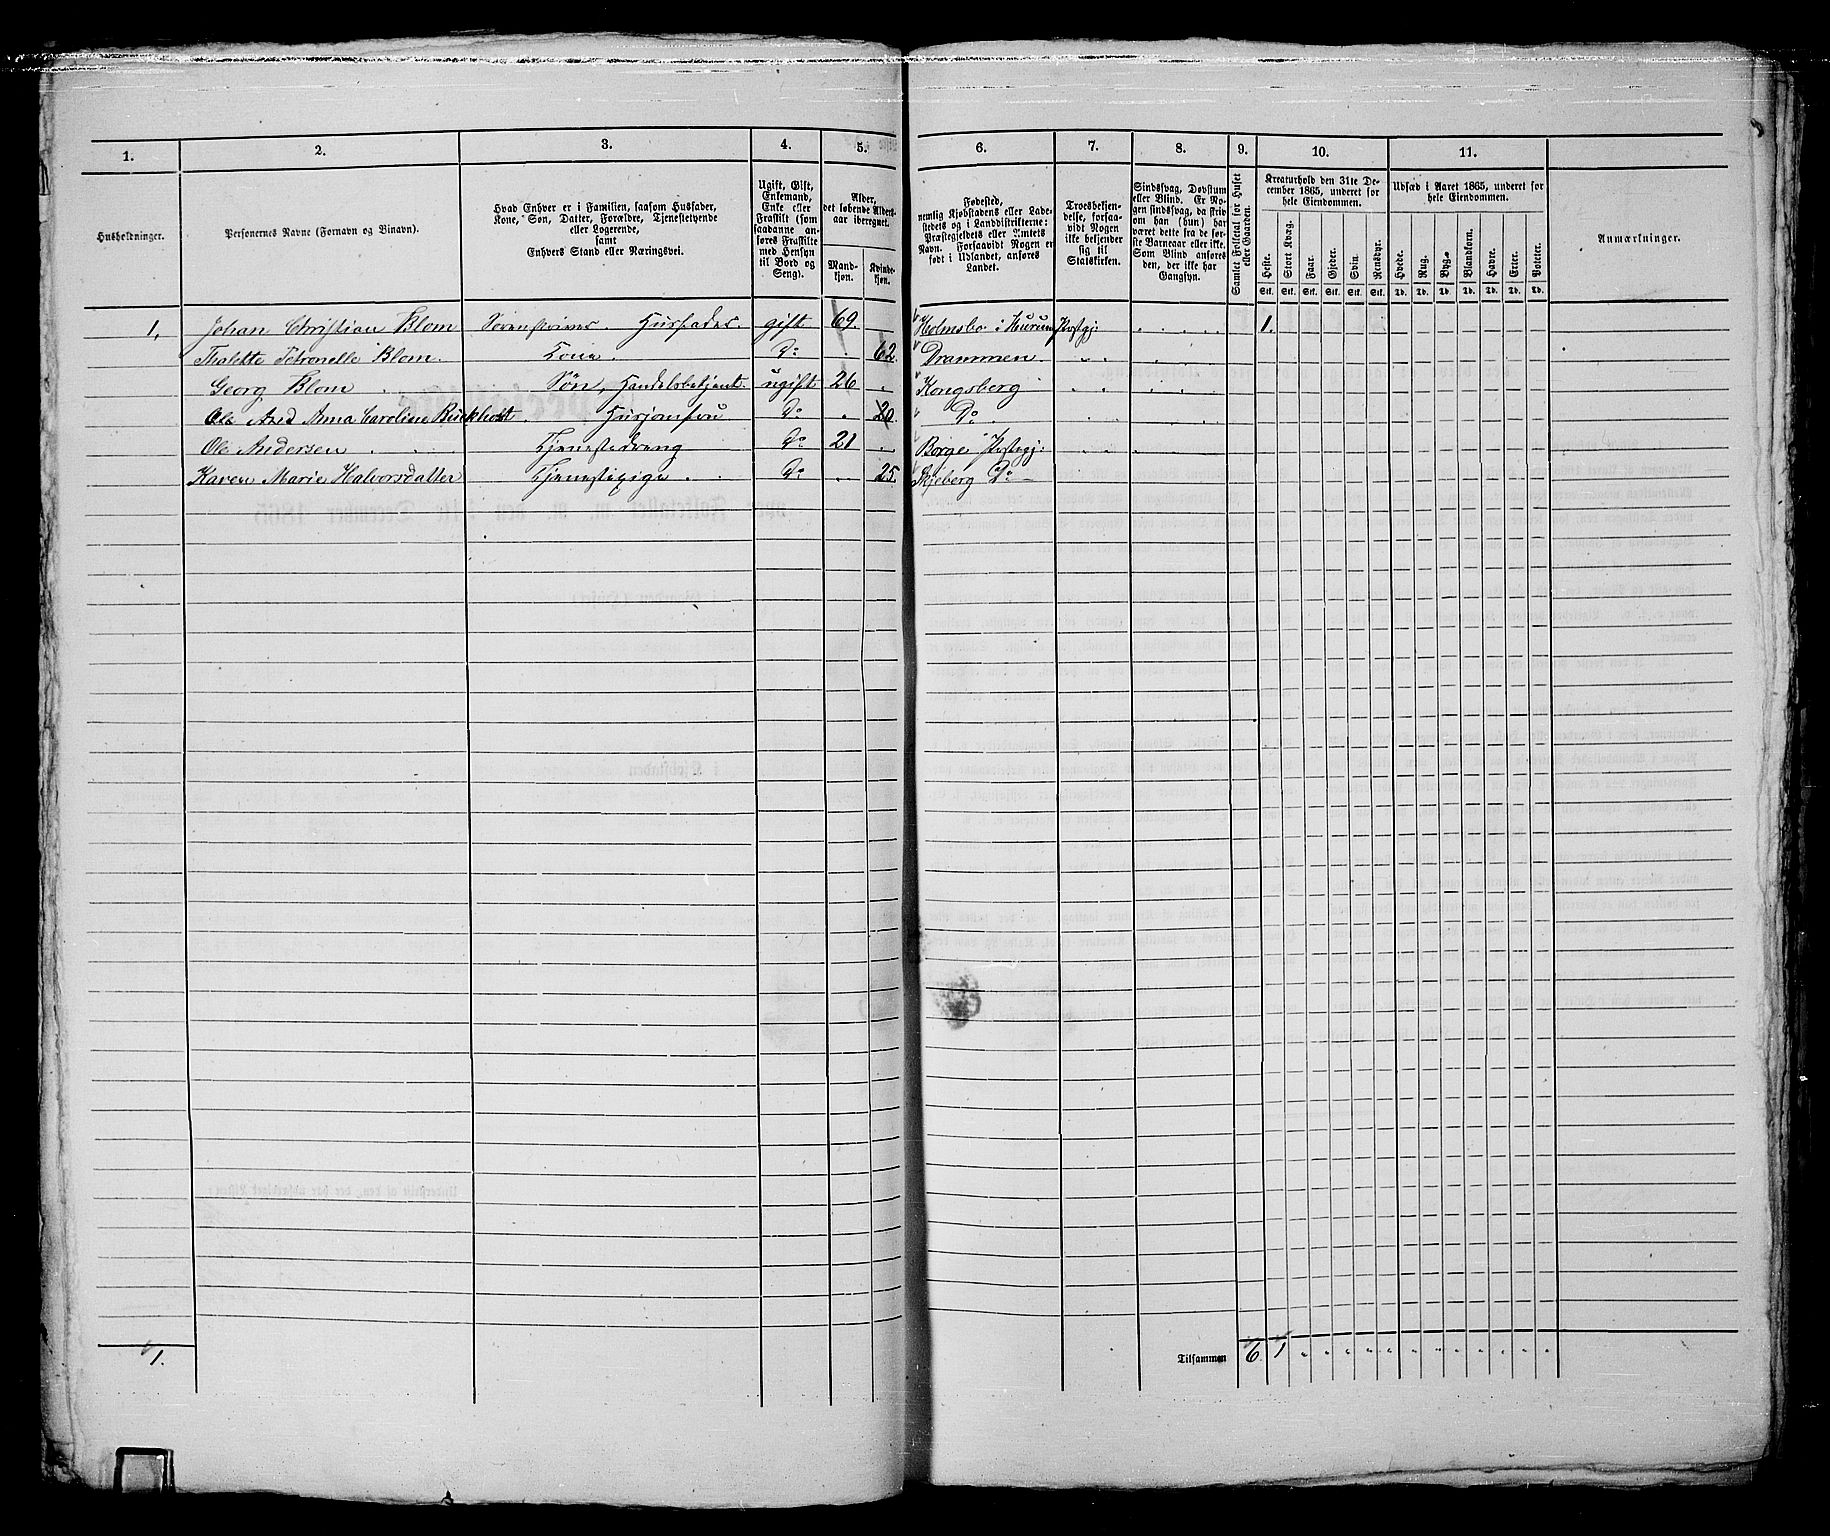 1. 2. 3. 4. 5. 6. 7. 8. 9. 10. 11.
Husholdninger.
Personernes Navne (Fornavn og Binavn).
Hvad Enhver er i Familien, saasom Husfader,
Kone, Søn, Datter, Forældre, Tjenestetyende
eller Logerende,
samt
Enhvers Stand eller Næringsvei.
Ugift, Gift,
Enkemand,
Enke eller
Fraskilt (som
saadanne an-
føres Fraskilte
med Hensyn
til Bord og
Seng).
Alder,
det løbende Alders-
aar iberegnet.
Mand-
kjøn.
Kvinde-
kjøn.
Fødested,
nemlig Kjøbstadens eller Lade-
stedets og i Landdistrikterne:
Præstegjeldets eller Amtets
Navn. Forsaavidt Nogen er
født i Udlandet, anføres
Landet.
Troesbekjen-
delse, forsaa-
vidt Nogen
ikke bekjender
sig til
Statskirken.
Sindssvag, Døvstum
eller Blind. Er No-
gen sindssvag, da skriv
om han (hun) har
været dette fra de før-
ste Barneaar eller ikke.
Som Blind anføres
den, der ikke har
Gangsyn.
Samlet Folketal for Huset
eller Gaarden.
Kreaturhold den 31te De-
cember 1865, underet for
hele Eiendommen.
Heste. Stort Kvæg. Faar. Gjeder. Svin. Rensdyr.
Stk. Stk. Stk. Stk. Stk. Stk.
Udsæd i Aaret 1865, underet for
hele Eiendommen.
Hvede. Rug. Byg. Blandkorn. Havre. Erter. Poteter.
Td. Td. Td. Td. Td. Td. Td.
Anmærkninger.
1, Johan Christian Blom Sorenskriver. Husfader. gift 69. Holmsbo i Hurum Prstgj: 1.
Thalette Petronelle Blom. Kone. Do 62. Drammen.
Georg Blom Søn, Handelsbetjent. ugift 26 Kongsberg
Ole And Anna Caroline Husjomfru Do 20. Do
Ole Andersen Tjenestedreng Do 21 Borge Prstgj:
Karen Marie Halvorsdatter Tjenestepige Do 25. Skjeberg Do
1. Tilsammen 6. 1